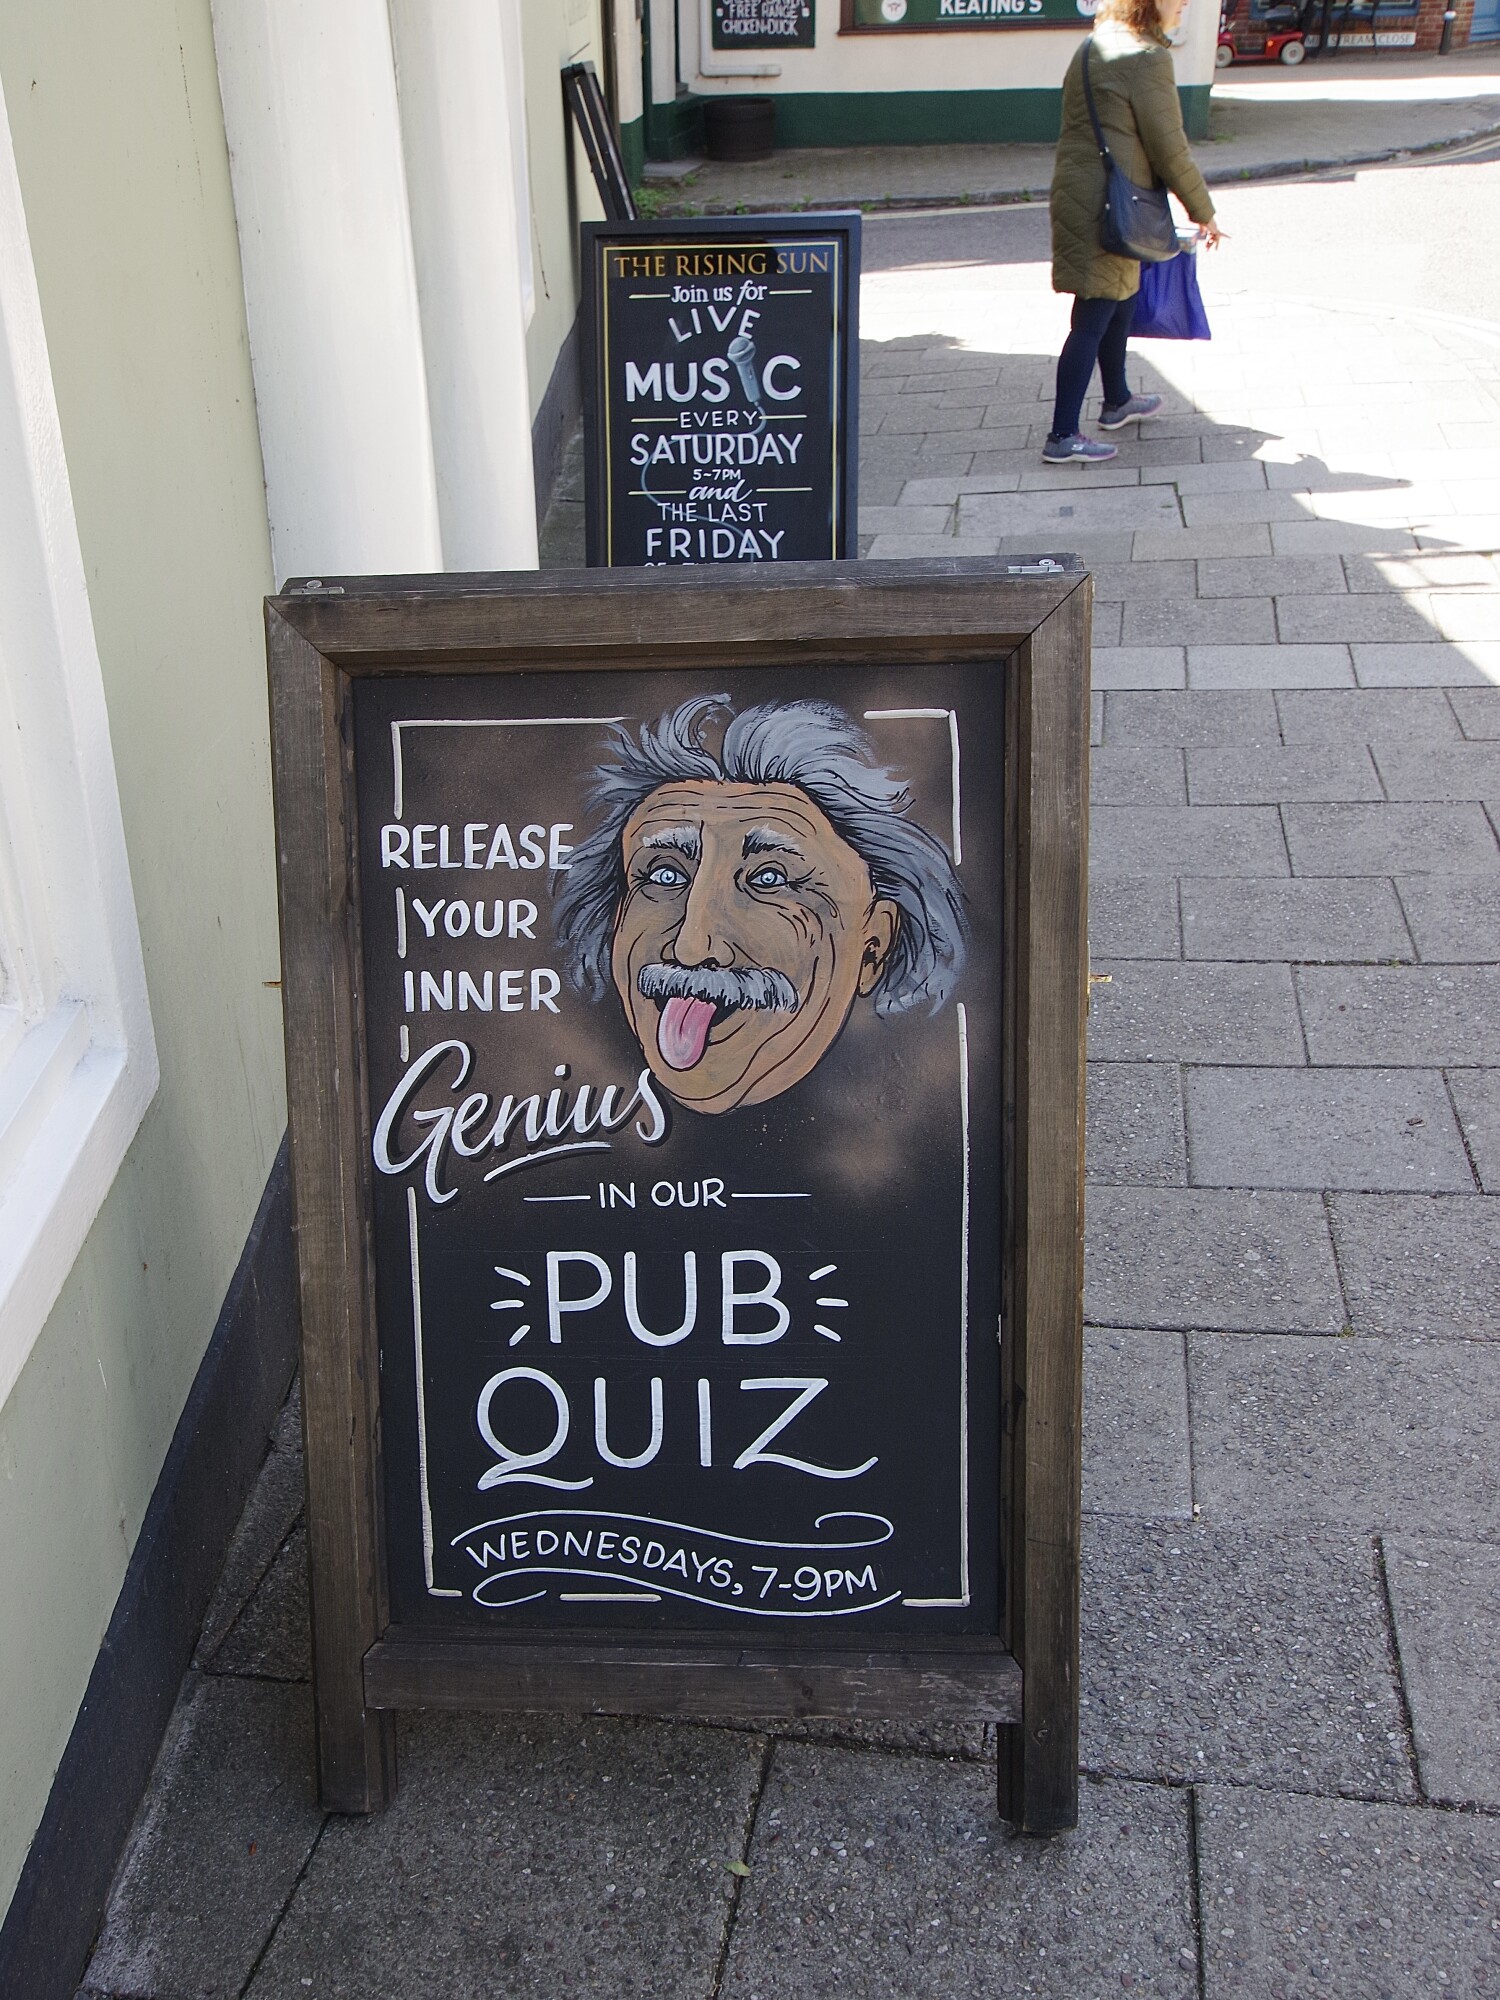 FREE RANGE
CHICKEN & DUCK
KEATING'S
STREAM CLOSE
THE RISING SUN
Join us for
LIVE
MUSIC
EVERY
SATURDAY
5-7PM
and
THE LAST
FRIDAY
RELEASE
YOUR
INNER
Genius
IN OUR
PUB
QUIZ
WEDNESDAYS, 7-9PM